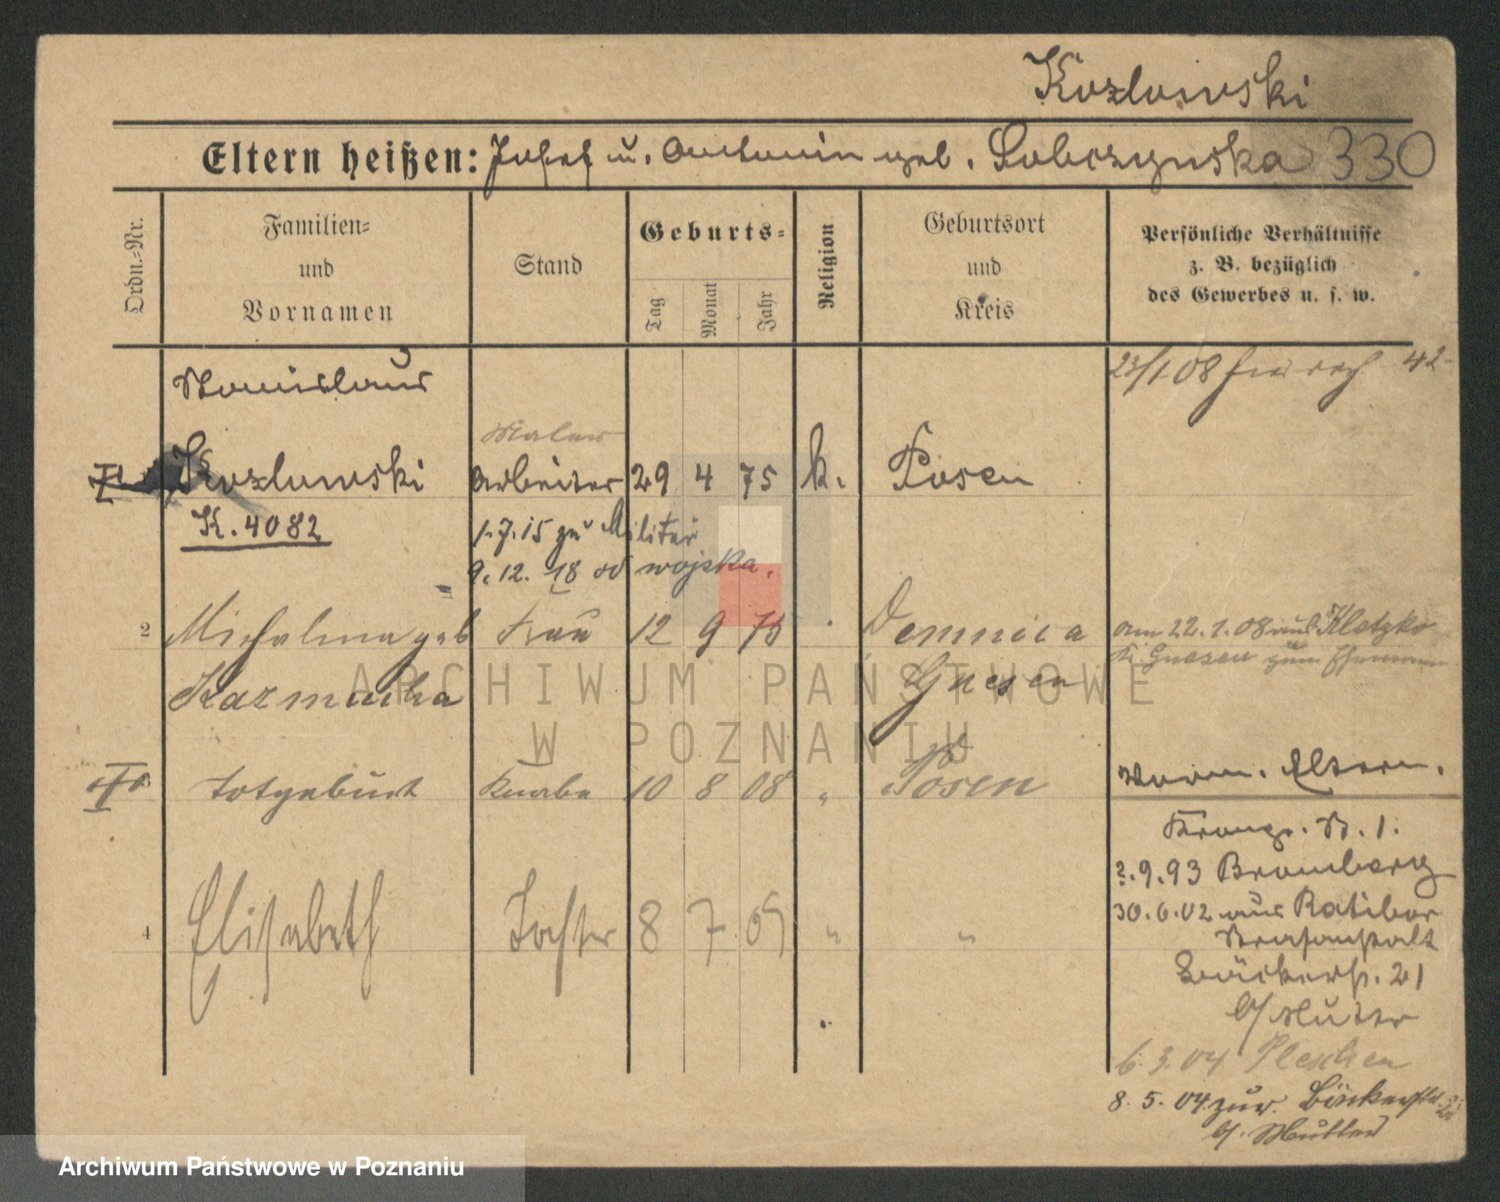 Kozlowski
Eltern heißen: Josef u. Antonin geb. Sobczynska 330
Ordn.-Nr.
Familien- und Vornamen
Stand
Geburts-
Tag
Monat
Jahr
Religion
Geburtsort und Kreis
Persönliche Verhältnisse z. B. bezüglich des Gewerbes u. s. w.
Stanislaus
23/1.08 42
Maler
Kozlowski Arbeiter 29 4 75 k. Posen
K. 4082
1.7.15 zu Militär
9.12.18 od wojska.
2 Michalina geb Frau 12 9 75 Demnica am 22.1.08 aus Kletzko
Gnesen zum Ehemann
Kazmucka Gnesen
Totgeburt Knabe 10 8 08 " Posen
Vorm. Eltern.
Kronpr. St. 1.
2.9.93 Bromberg
4 Elisabeth Tochter 8 7 09 " "
30.6.02 aus Ratibor
Strafanstalt
Bäckerst. 21
b/ Mutter
6.3.04 Pleschen
8.5.04 zur. Bäckerstr.
b/. Mutter
ARCHIWUM PAŃSTWOWE
W POZNANIU
Archiwum Państwowe w Poznaniu